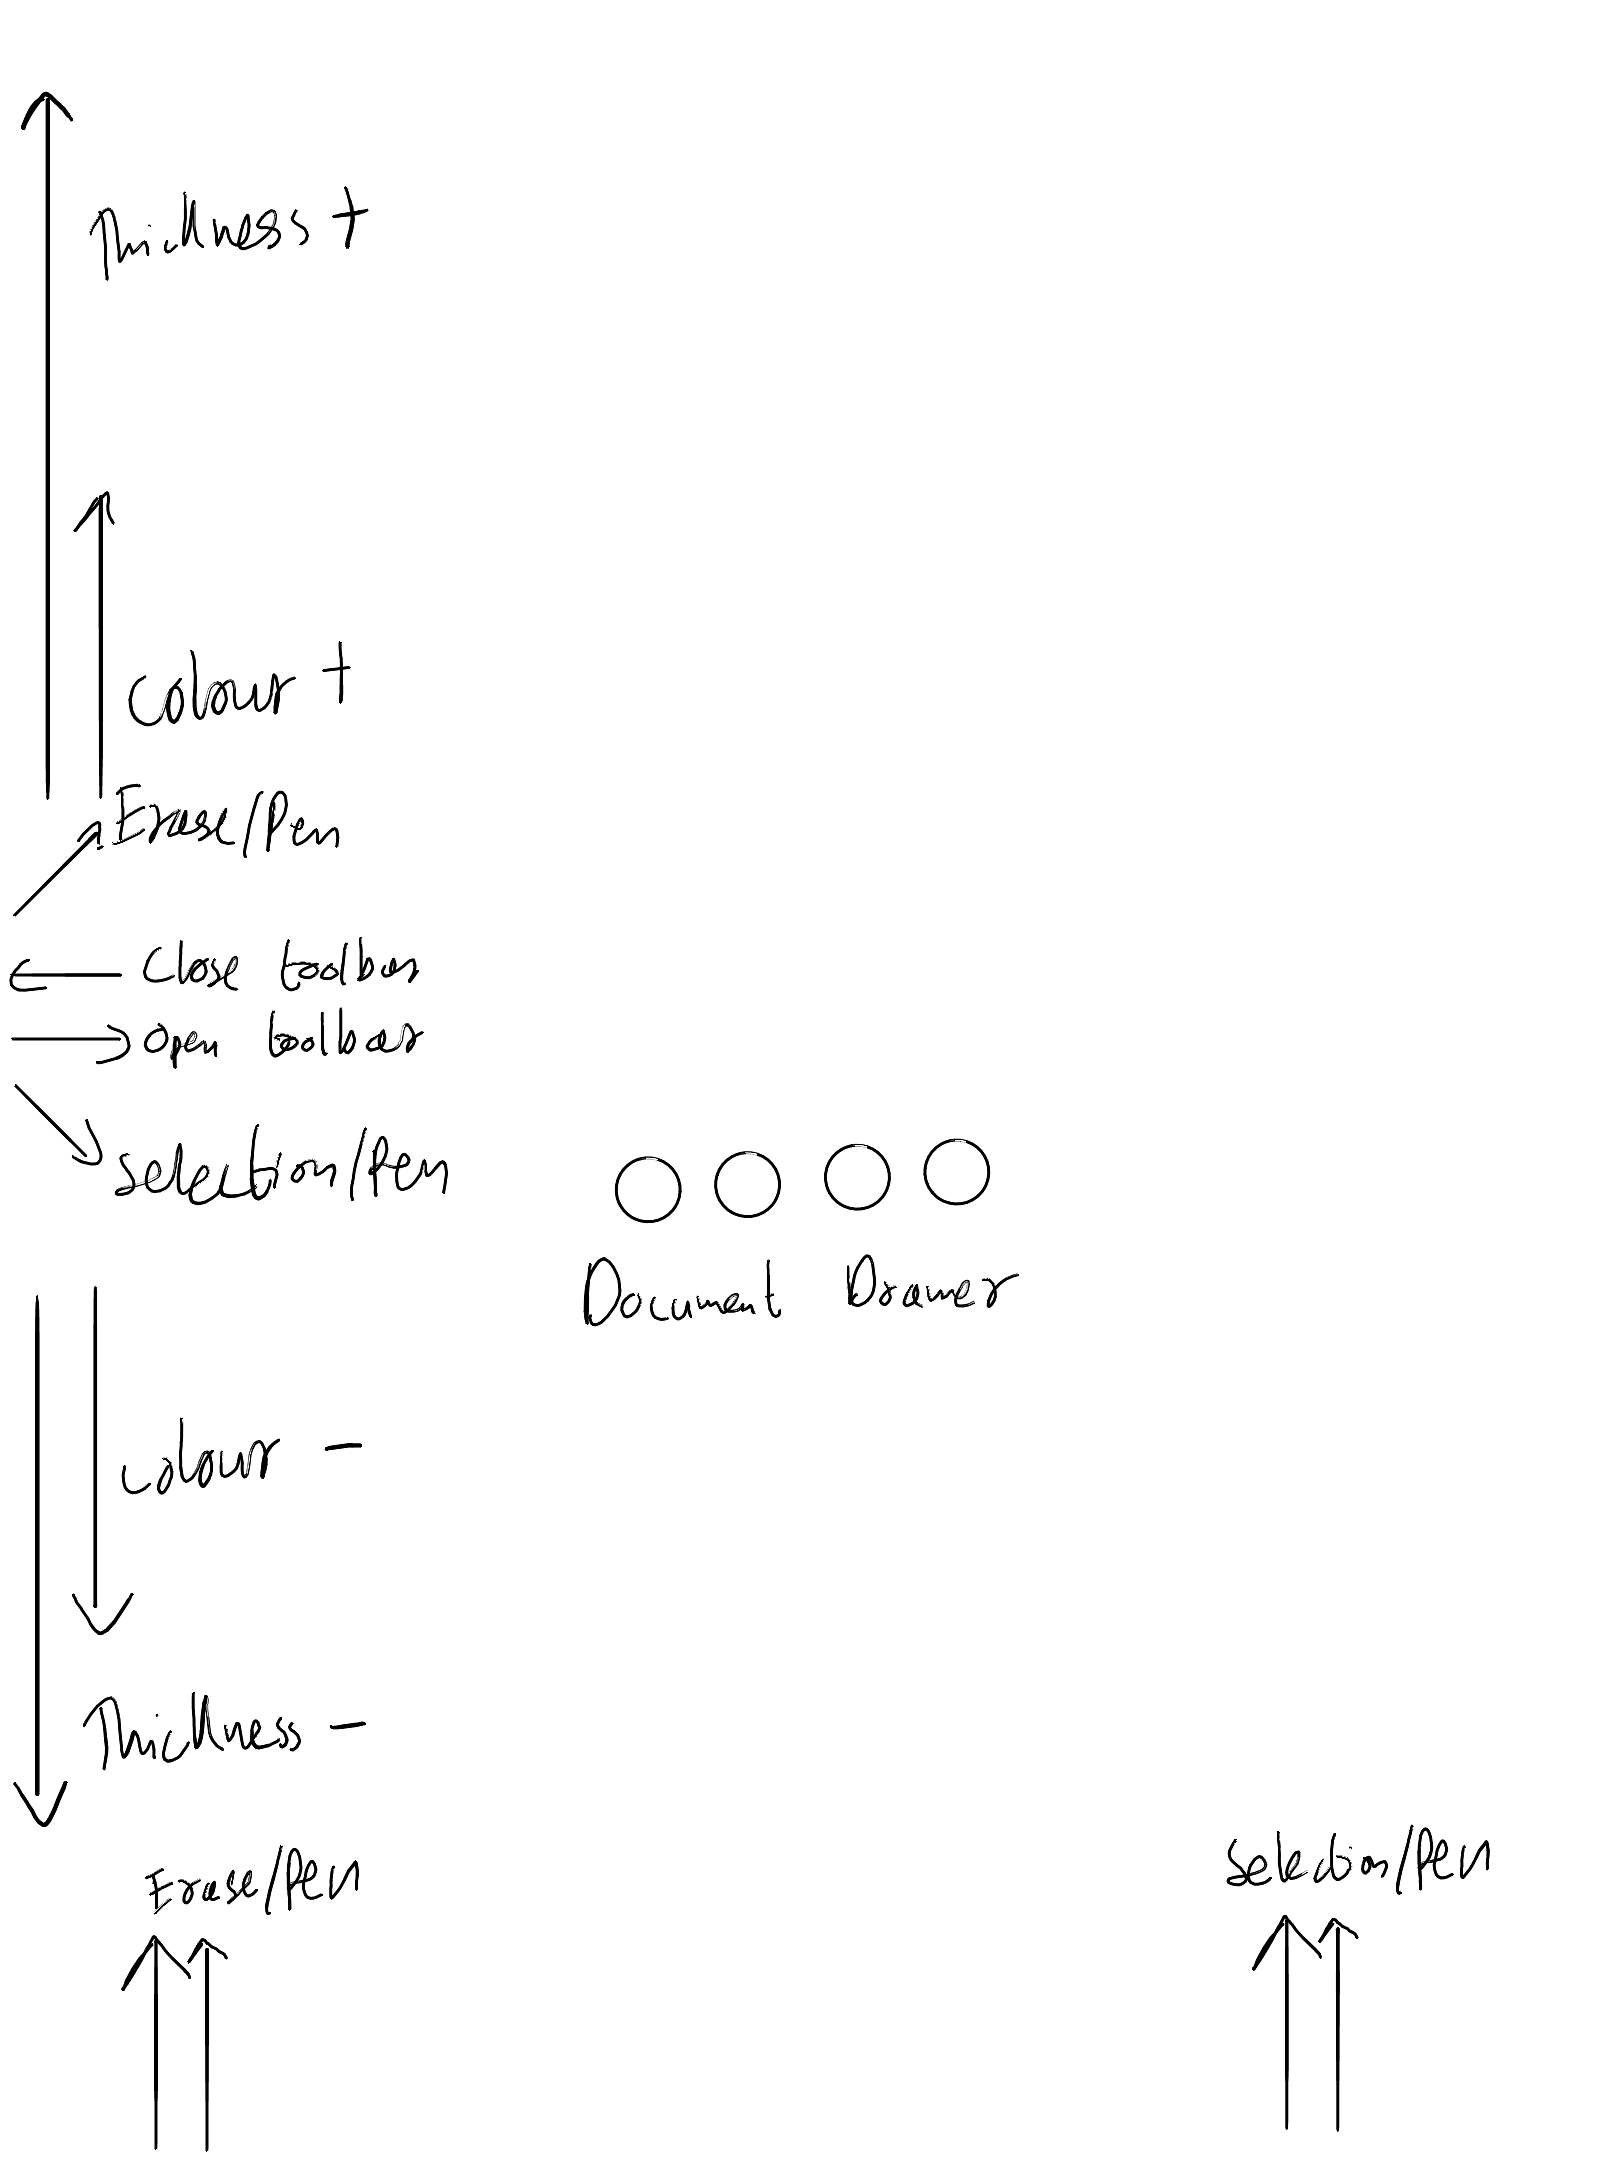 Thickness +
Colour +
Erase/Pen
Close toolbar
Open toolbar
Selection/Pen
Document Drawer
Colour -
Thickness -
Erase/Pen
Selection/Pen